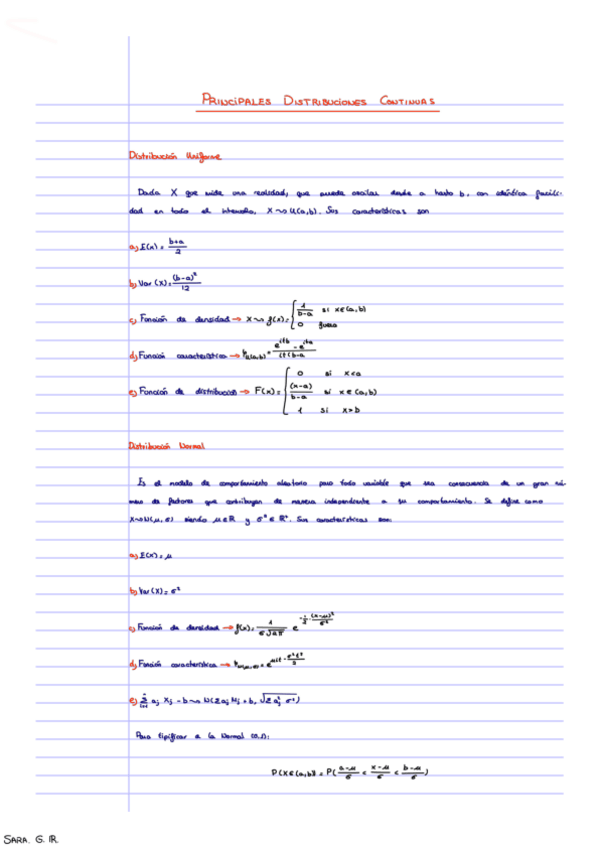 PRINCIPALES DISTRIBUCIONES CONTINUAS
Distribución Uniforme
Dada X que mide una realidad, que puede oscilar desde a hasta b, con idéntica facili-
dad en todo el intervalo, X ~> U(a,b). Sus características son
a) E(x) = (b+a)/2
b) Var (X) = (b-a)²/12
c) Función de densidad → X ~> f(x) = { 1/(b-a) si x∈(a,b)
0 fuera
d) Función característica → φu(a,b) = (e^itb - e^ita)/(it(b-a
e) Función de distribución → F(x) = { 0 si x<a
(x-a)/(b-a) si x∈(a,b)
1 si x>b
Distribución Normal
Es el modelo de comportamiento aleatorio para toda variable que sea consecuencia de un gran nú-
mero de factores que contribuyen de manera independiente a su comportamiento. Se define como
X~>N(μ, σ) siendo μ∈ℝ y σ²∈ℝ⁺. Sus características son:
a) E(X) = μ
b) Var(X) = σ²
c) Función de densidad → f(x) = 1/(σ√2π) e^(-1/2 · (x-μ)²/σ²)
d) Función característica → φN(μ,σ) = e^(μit - σ²t²/2)
e) Σ aj Xj - b ~> N(Σaj Mj + b, √(Σaj² σ²))
Para tipificar a la Normal (0,1):
P(X∈(a,b)) = P((a-μ)/σ < (x-μ)/σ < (b-μ)/σ)
SARA. G. IR.